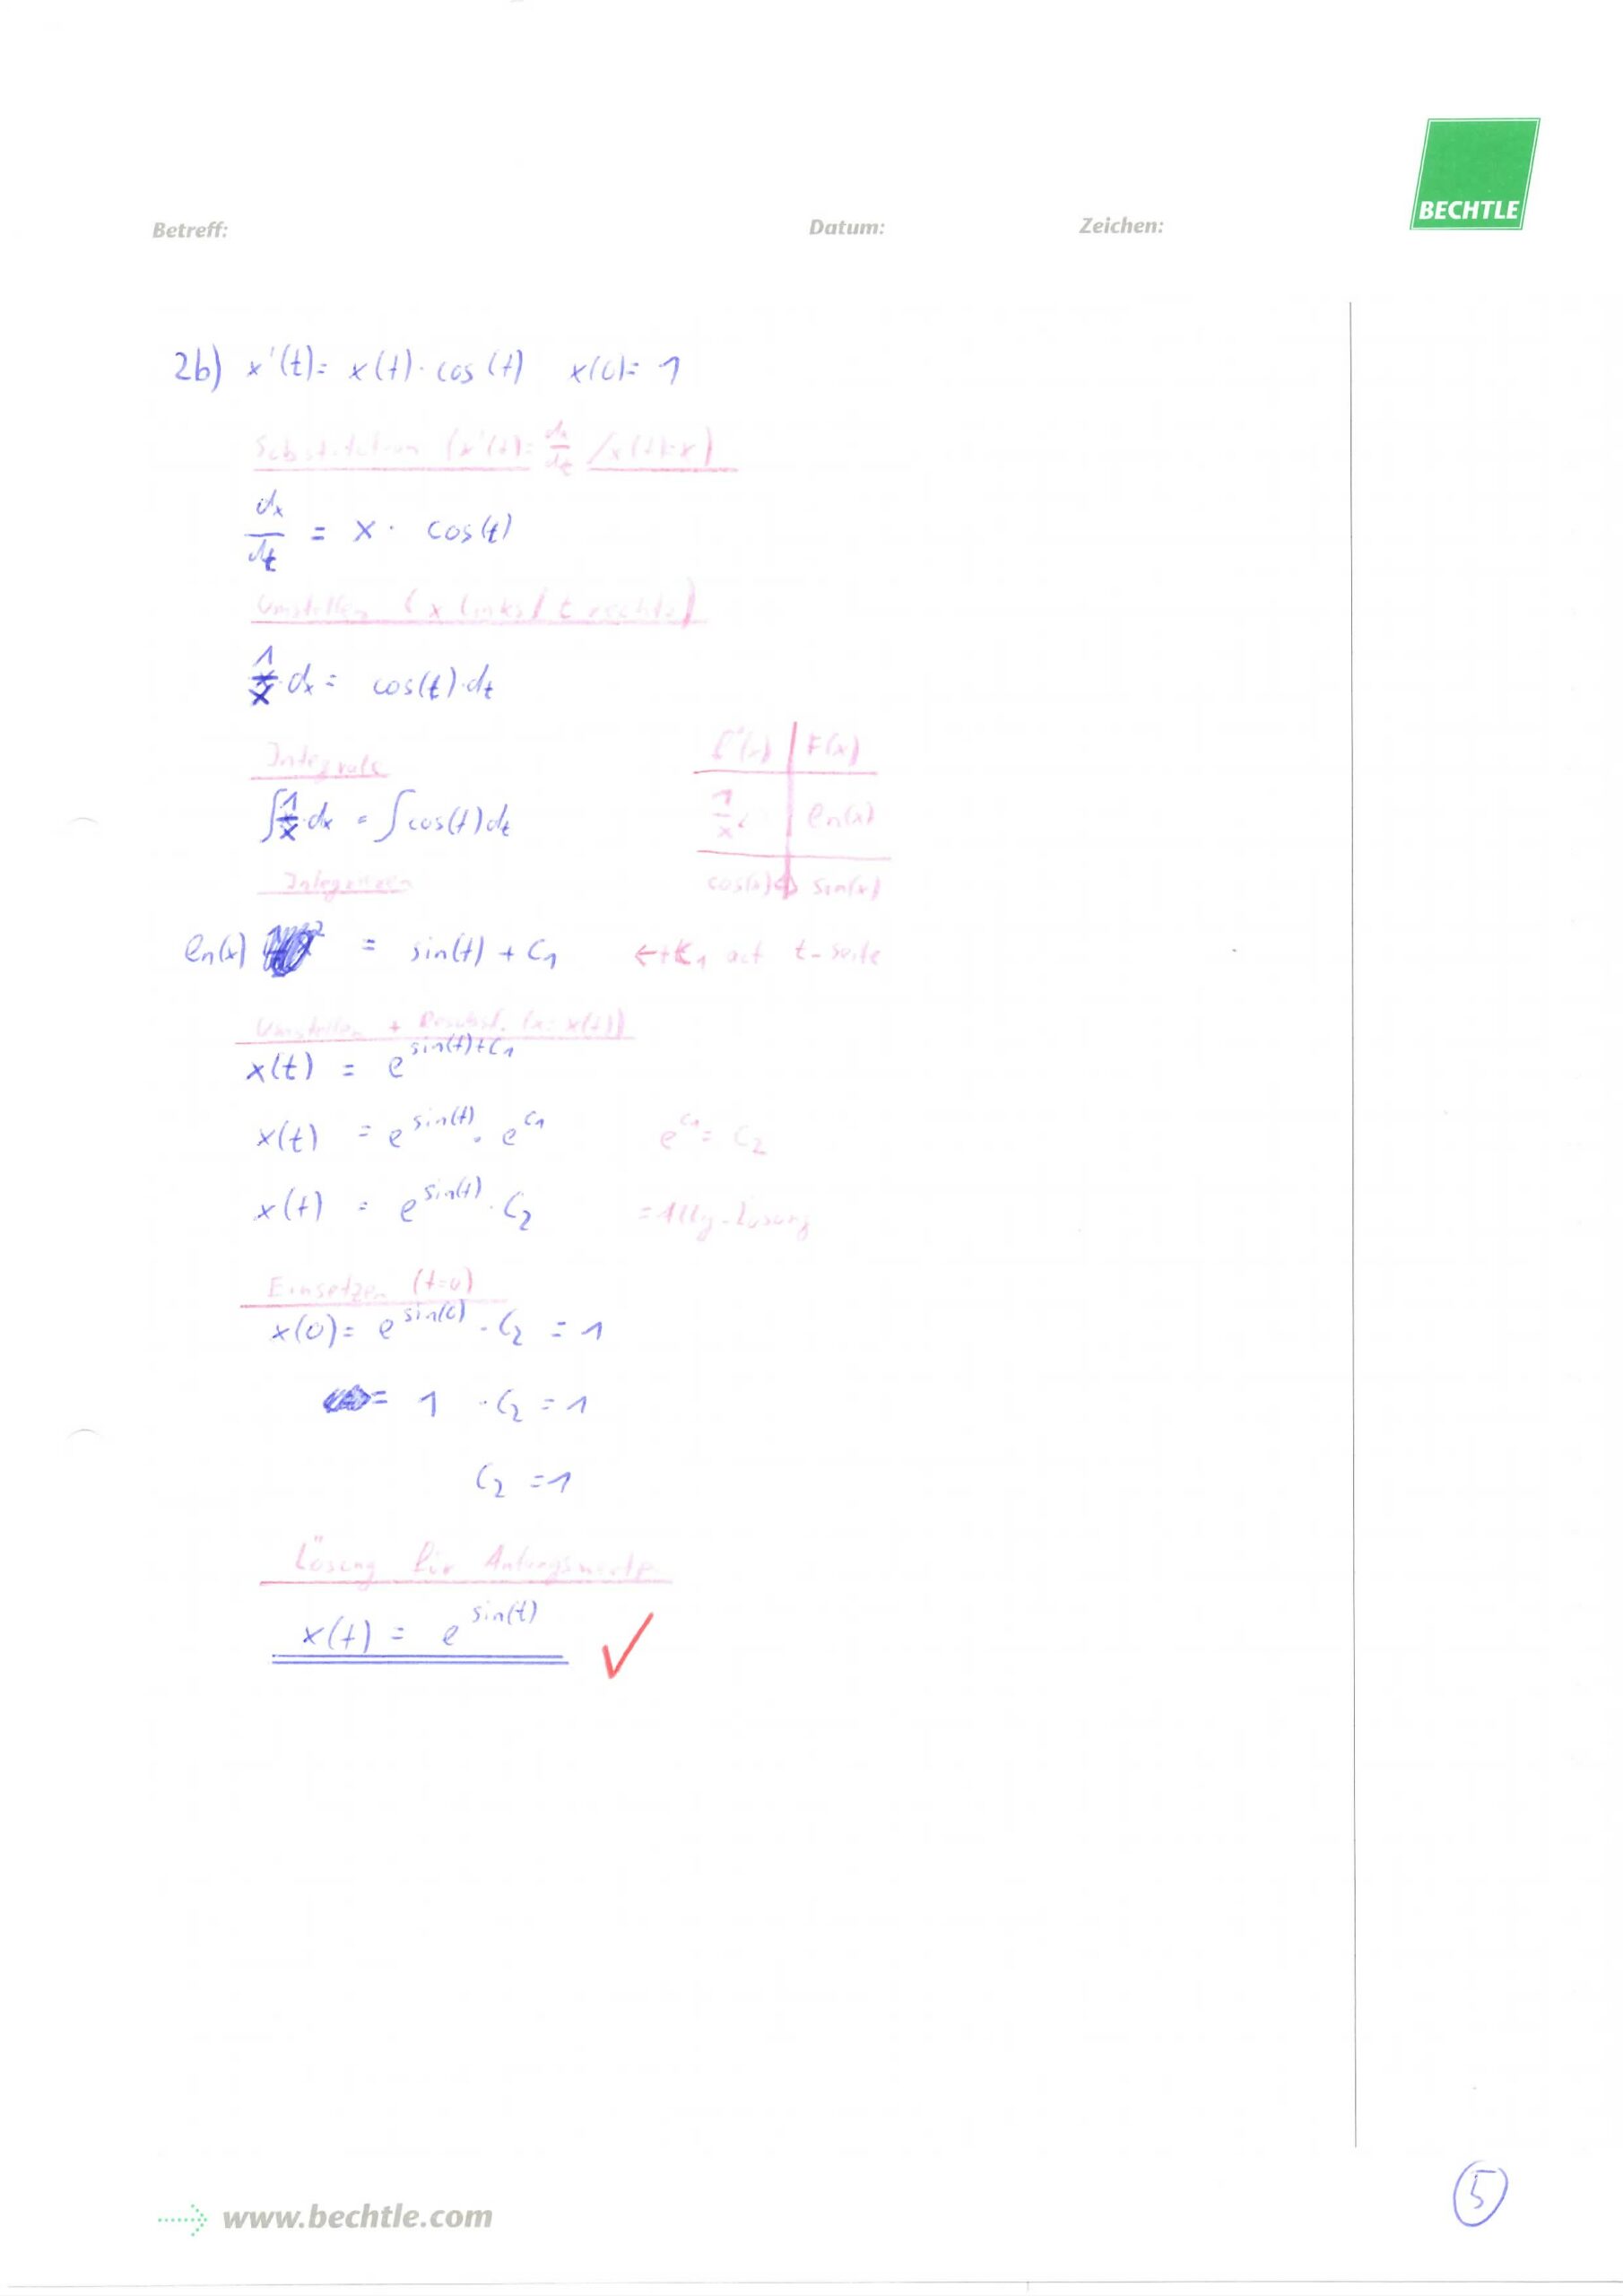 BECHTLE
Betreff: Datum: Zeichen:
2b) x'(t)= x(t)· cos(t) x(0)= 1
Substitution (x'(t)= dx/dt / x(t)=x)
dx/dt = x · cos(t)
Umstellen (x links / t rechts)
1/x · dx = cos(t)·dt
Integrale
f'(x) | F(x)
∫ 1/x · dx = ∫ cos(t) dt
1/x | ln(x)
Integrieren
cos(x) | sin(x)
ln(x) = sin(t) + C1 ← + K1 auf t-Seite
Umstellen + Resubst. (x= x(t))
x(t) = e^sin(t)+C1
x(t) = e^sin(t) · e^C1 e^C1 = C2
x(t) = e^sin(t) · C2 = Allg. Lösung
Einsetzen (t=0)
x(0)= e^sin(0) · C2 = 1
= 1 · C2 = 1
C2 = 1
Lösung für Anfangswerte
x(t) = e^sin(t) ✓
www.bechtle.com
5